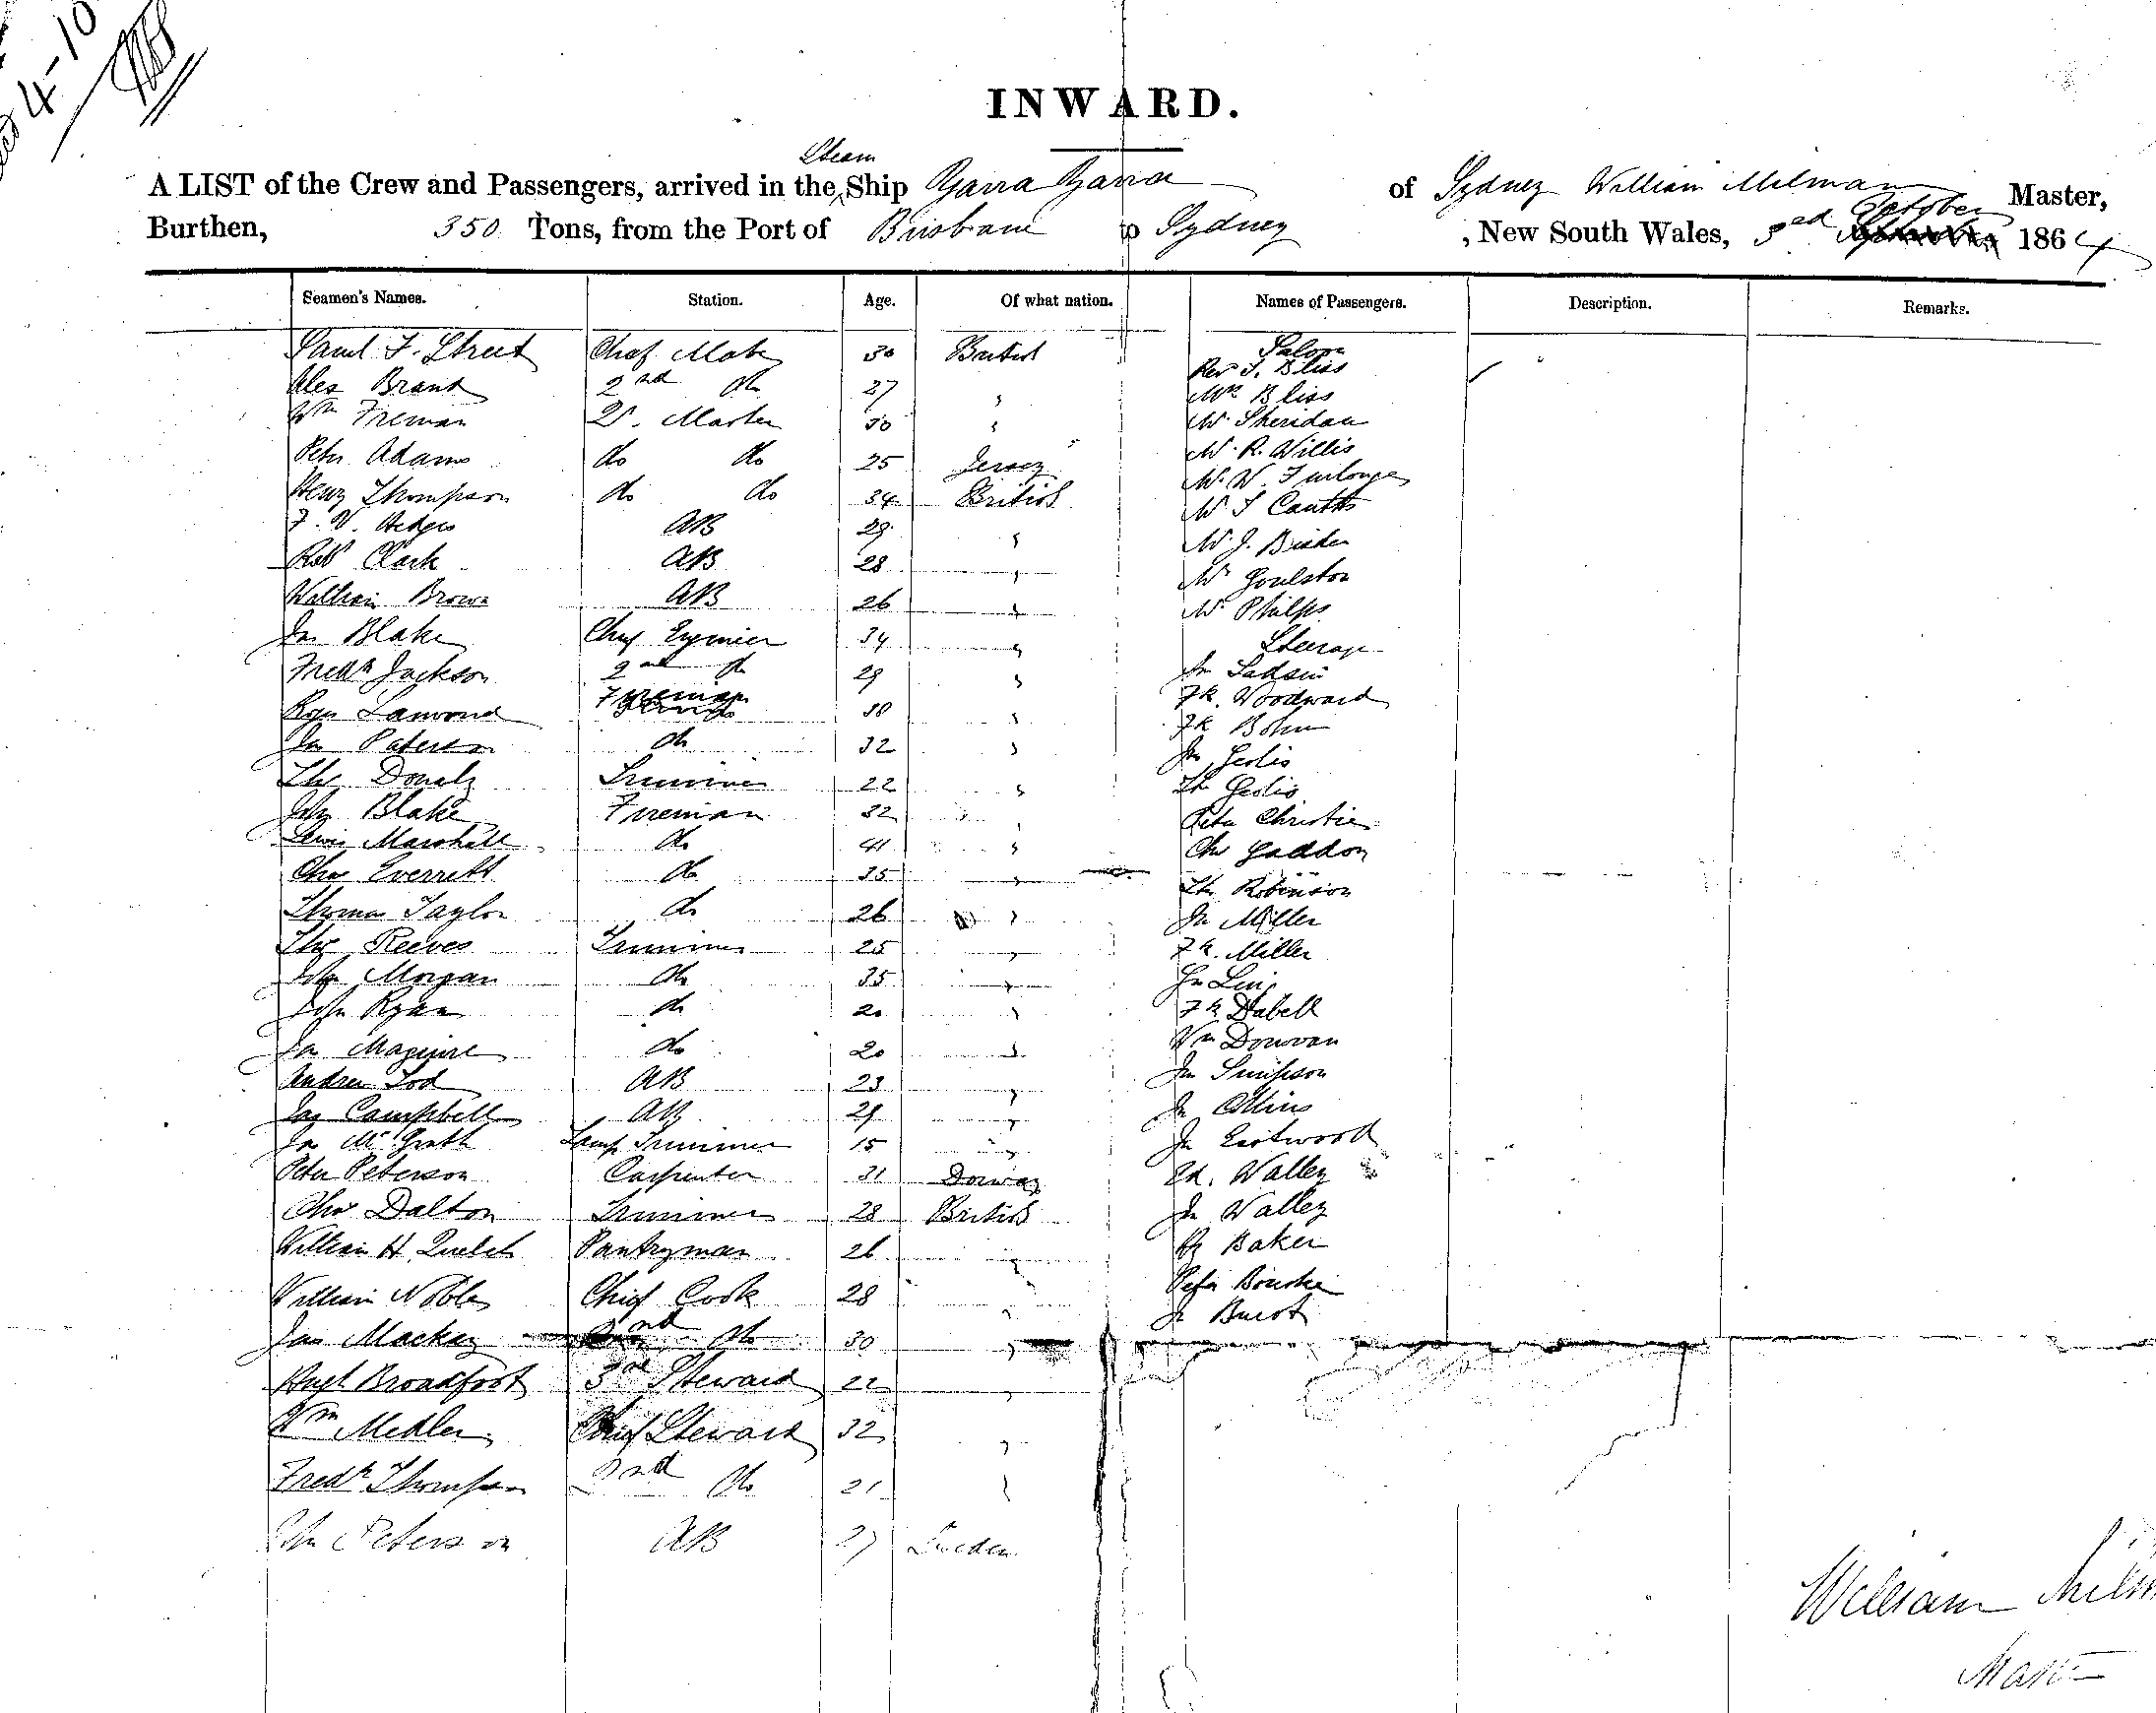 4-10
INWARD.
Steam
A LIST of the Crew and Passengers, arrived in the Ship Yarra Yarra of Sydney William Milman Master,
October
Burthen, 350 Tons, from the Port of Brisbane to Sydney, New South Wales, 3ed 1864
Seamen's Names. Station. Age. Of what nation. Names of Passengers. Description. Remarks.
Saml F. Street Chief Mate 30 British Saloon
Rev J. Bliss
Alex Brand 2nd do 27 " Mrs Bliss
Wm Freman Qr. Master 30 " Mr Sheridan
Mr R. Willis
Peter Adams do do 25 Jersey Mr W. Furlonge
Henry Thompson do do 34 British Mr
F. W. Hedges AB 29 " Mr J.
Robt Clark AB 28 " Mr Goulston
William Brown AB 26 " Mr Philps
Jas Blake Chief Enginier 34 " Steerage
Fredk Jackson 2nd do 29 "
Fk. Woodward
Roger Lamond Fireman 30 " Fk Bohm
Jas Paterson do 32 " Jn
Thos Donaly Trimmer 22 " Th
John Blake Fireman 32 " Peter Christie
Lewis Marshall do 41 " Chs Gaddon
Chas Everrett do 35 " Th Robinson
Thomas Taylor do 26 " Jn Miller
Thos Reeves Trimmer 25 " Fk. Miller
John Morgan do 35 " Jn
John Ryan do 20 " Fk Dabell
Jas Maguire do 20 " Wm Donovan
Andrew Tod AB 23 " Jn Simpson
Jas Campbell AB 29 " Jn Collins
Jas McGrath Lamp Trimmer 15 " Jn Eastwood
Peter Peterson Carpenter 31 Ed. Walley
Chas Dalton Trimmer 28 British Jn Walley
William H. Quelch Pantryman 26 " Baker
William Nobles Chief Cook 28 " Peter Bourke
Jn
Jas Mackay 2nd do 30 "
Hugh Broadfoot 3rd Steward 22 "
Wm Medler Chief Steward 32 "
Fredk Thompson 2nd do 21 "
Peterson AB 27 Sweden
William Milm
Master